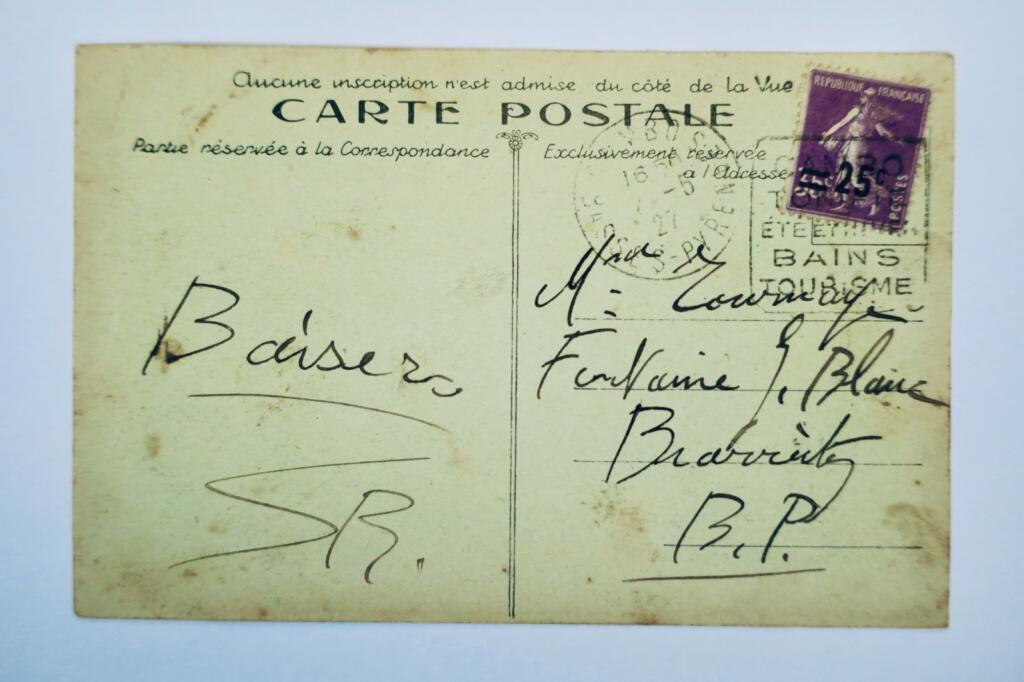 Aucune inscription n'est admise du côté de la Vue
CARTE POSTALE
Partie réservée à la Correspondance
Exclusivement réservée
a l'Adresse
REPUBLIQUE FRANÇAISE
25c
POSTES
16
-5
27
S-PYREN
CAMBO
ÉTÉ ET HIVER
BAINS
TOURISME
Baisers
SR.
Mme
Fontaine
Blanc
Biarritz
B.P.